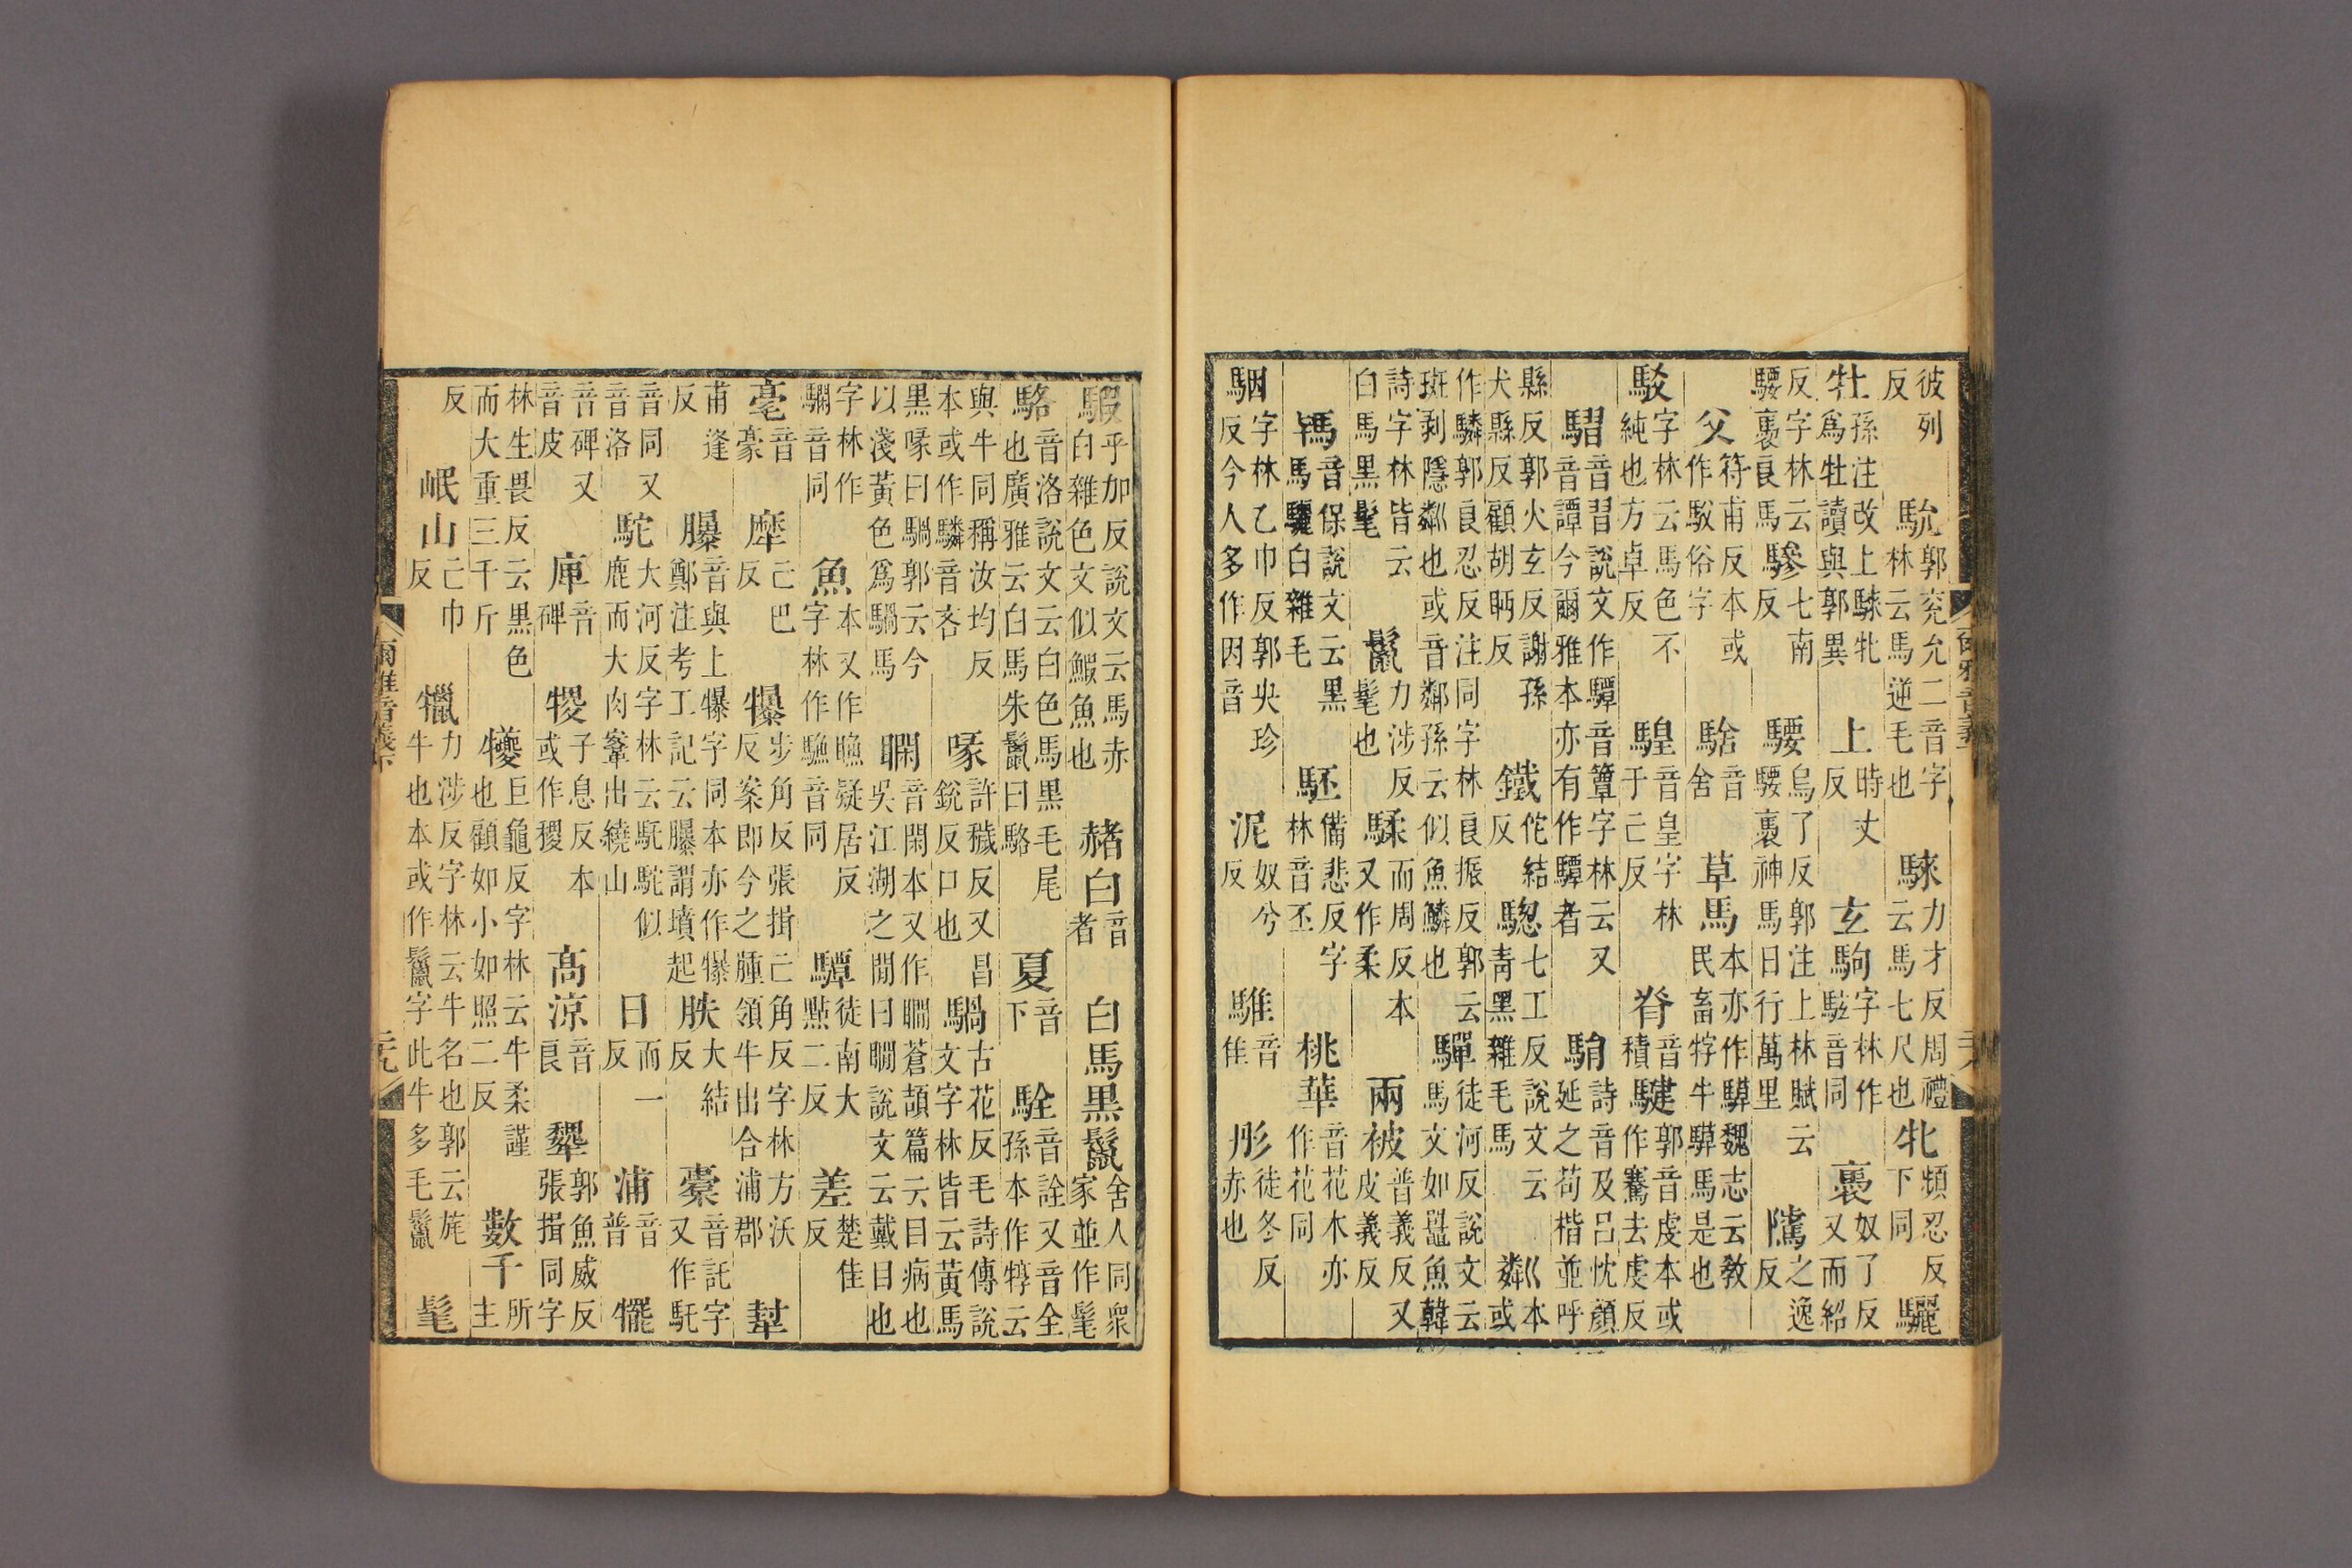 彼列反馻郭兖允二音字林云馬逆毛也騋力才反周禮云馬七尺也牝頻忍反下同驪
牡孫注改上騋牝爲牡讀與郭異上時丈反玄駒字林作駭音同褭奴了反又而紹
反字林云騕褭良馬驂七南反騕烏了反郭注上林賦云騕褭神馬日行萬里騭之逸反
父符甫反本或作駁俗字騇音舍草馬本亦作騲魏志云敎民畜牸牛騲馬是也
駁字林云馬色不純也方卓反騜音皇字林于亡反脊音積騝郭音虔本或作騫去虔反
騽音習說文作驔音簟字林云又音譚今爾雅本亦有作驔者駽詩音及呂忱顏延之荀楷並呼
縣反郭火玄反謝孫犬縣反顧胡眄反鐵佗結反騘七工反說文云青黑雜毛馬粼本或
作驎郭良忍反注同字林良振反郭云斑剥隱粼也或音鄰孫云似魚鱗也驒徒河反說文云馬文如鼉魚韓
詩字林皆云白馬黑髦鬣力涉反髦也騥而周反本又作柔兩被普義反又皮義反
駂音保說文云黑馬驪白雜毛駓備悲反字林音丕桃華音花木亦作花同
駰字林乙巾反郭央珍反今人多作因音泥奴兮反騅音佳彤徒冬反赤也
爾雅音義下
騢乎加反說文云馬赤白雜色文似鰕魚也赭白音者白馬黑鬣舍人同衆家並作髦
駱音洛說文云白色馬黑毛尾也廣雅云白馬朱鬣曰駱夏音下駩音詮又音全孫本作犉云
與牛同稱汝均反本或作驎音吝喙許穢反又昌銳反口也騧古花反毛詩傳說文字林皆云黃馬
黑喙曰騧郭云今以淺黃色爲騧馬瞯音閑本又作瞷蒼頡篇云目病也吳江湖之間曰瞷說文云戴目也
字林作音同魚本又作字林作疑居反音同驔徒南大點二反差楚佳反
毫音豪犘亡巴反犦步角反張揖亡角反字林方沃反案即今之腫領牛出合浦郡犎
甫逢反音與上犦字同本亦作犦鄭注考工記云謂墳起胅大結反橐音託字又作馲
音同又音洛駝大河反字林云馲駝似鹿而大肉鞌出繞山日而一反浦音普犤
音碑又音皮庳音碑㹀子息反本或作稷髙涼音良犩郭魚威反張揖同字
林生畏反云黑色而大重三千斤犪巨龜反字林云牛柔謹也顧如小如照二反數千所主
反岷山亡巾反犣力涉反字林云牛名也郭云旄牛也本或作鬣字此牛多毛鬣髦
爾雅音義下